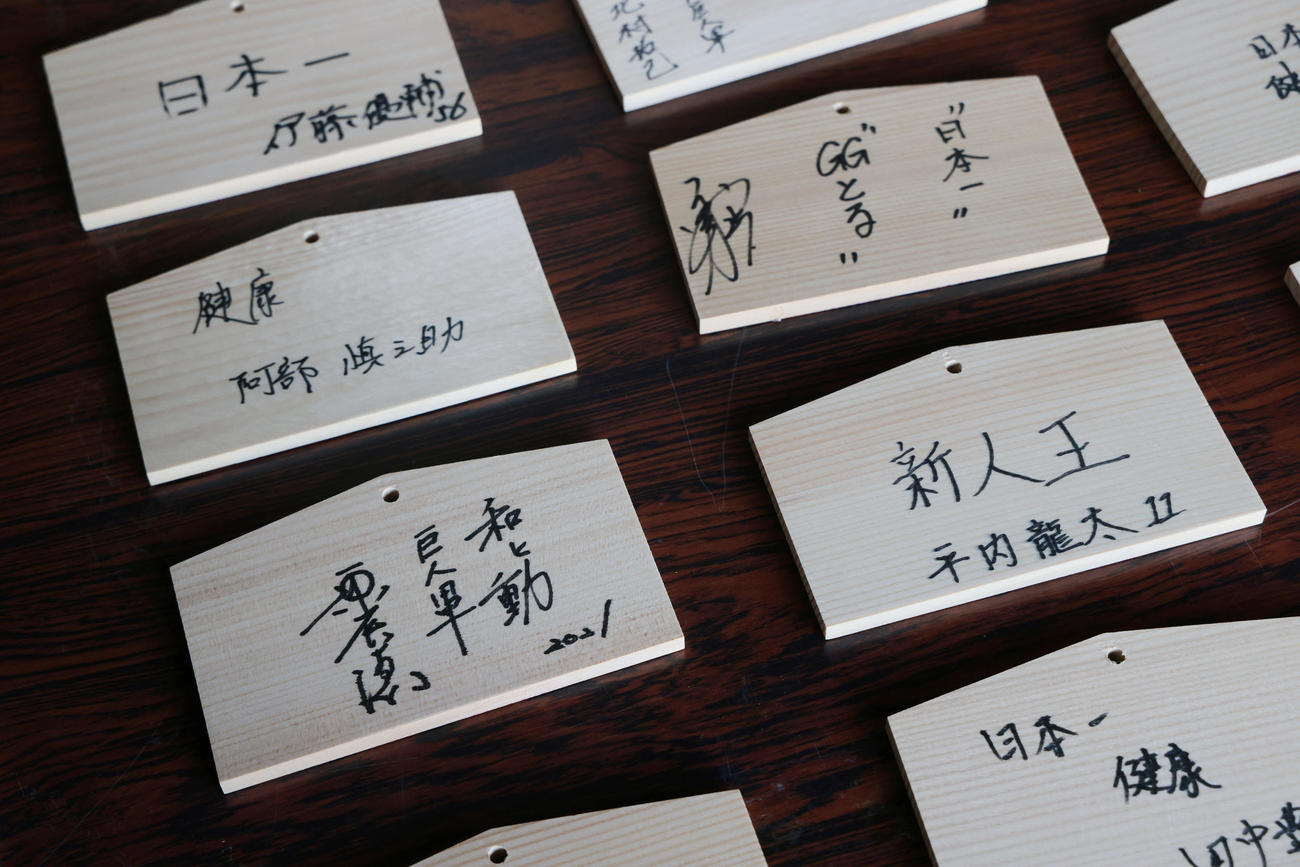 日本一
伊藤優輔
56
北村拓己
"日本一"
"GGとる"
日本
健
健康
阿部 慎之助
新人王
平内龍太 11
和と動
巨人軍
原辰徳
2021
日本一
健康
田中豊